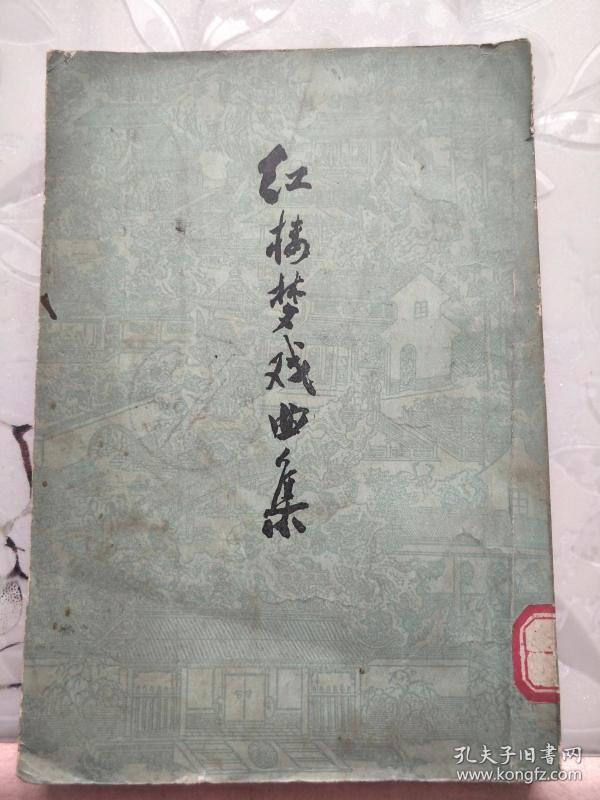 红楼梦戏曲集
孔夫子旧书网
www.kongfz.com